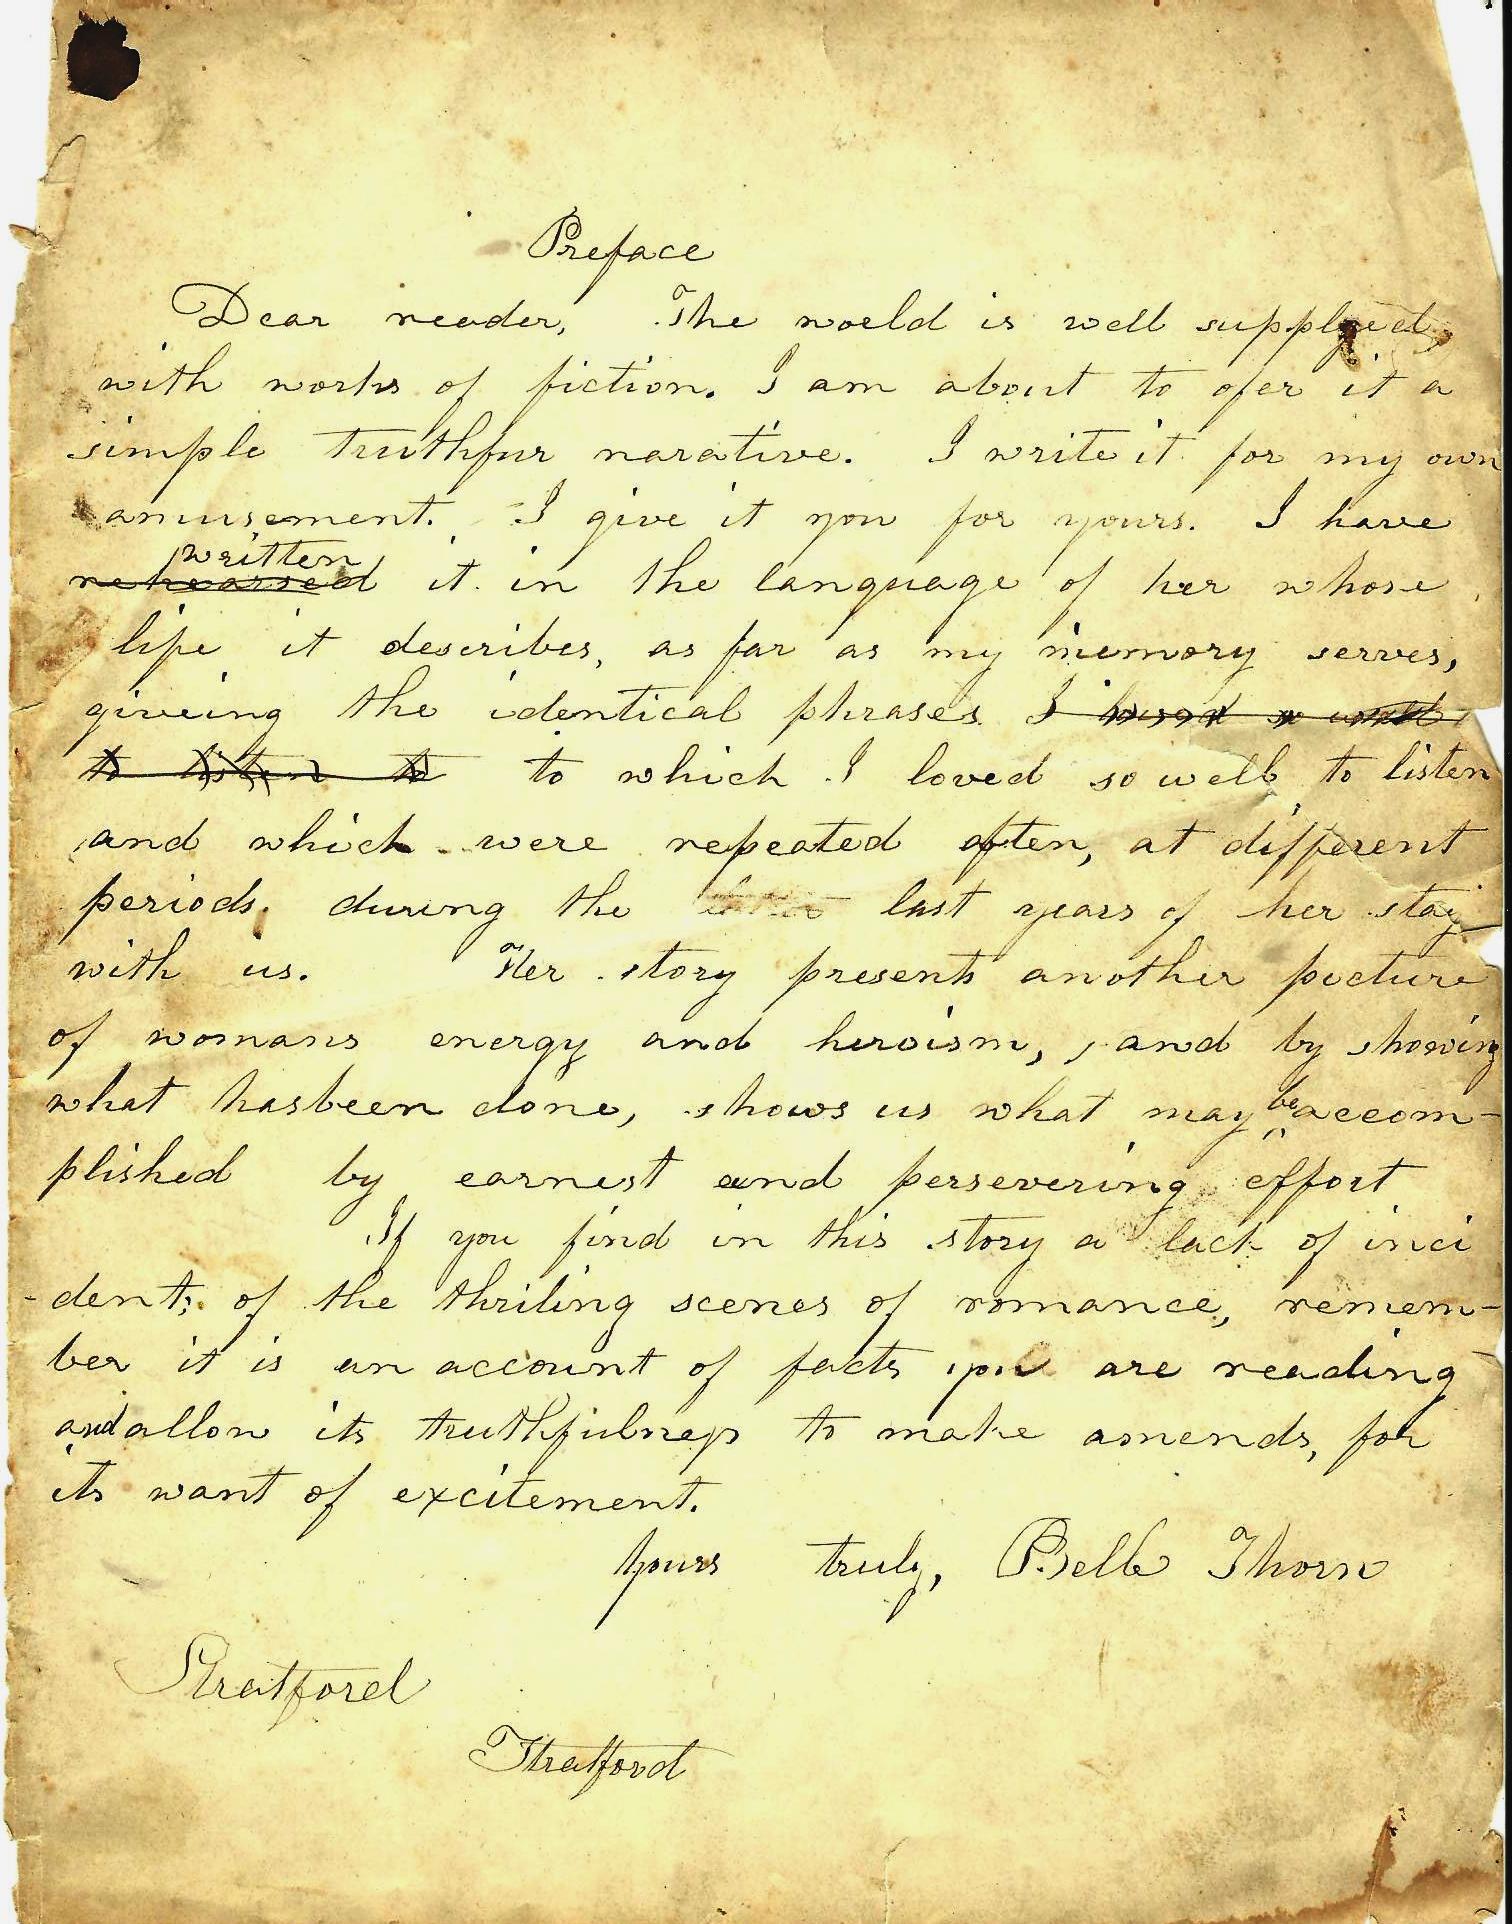 Preface
Dear reader, The woeld is well supplied
with works of fiction. I am about to ofer it a
simple truthfur narative. I write it for my own
amusement. I give it you for yours. I have
written
rehearsed it in the language of her whose
life it describes, as far as my memory serves,
giveing the identical phrases I loved so well
to listen to to which I loved so well to listen
and which were repeated often, at different
periods. during the last years of her stay
with us. Her story presents another picture
of womans energy and heroism, and by showing
what hasbeen done, shows us what may be accom-
plished by earnest and persevering effort
If you find in this story a lack of inci
-dent; of the thriling scenes of romance, remem-
ber it is an account of facts you are reading
and allow its truthfulness to make amends, for
its want of excitement.
Yours truly, Belle Thorn
Stratford
Stratford